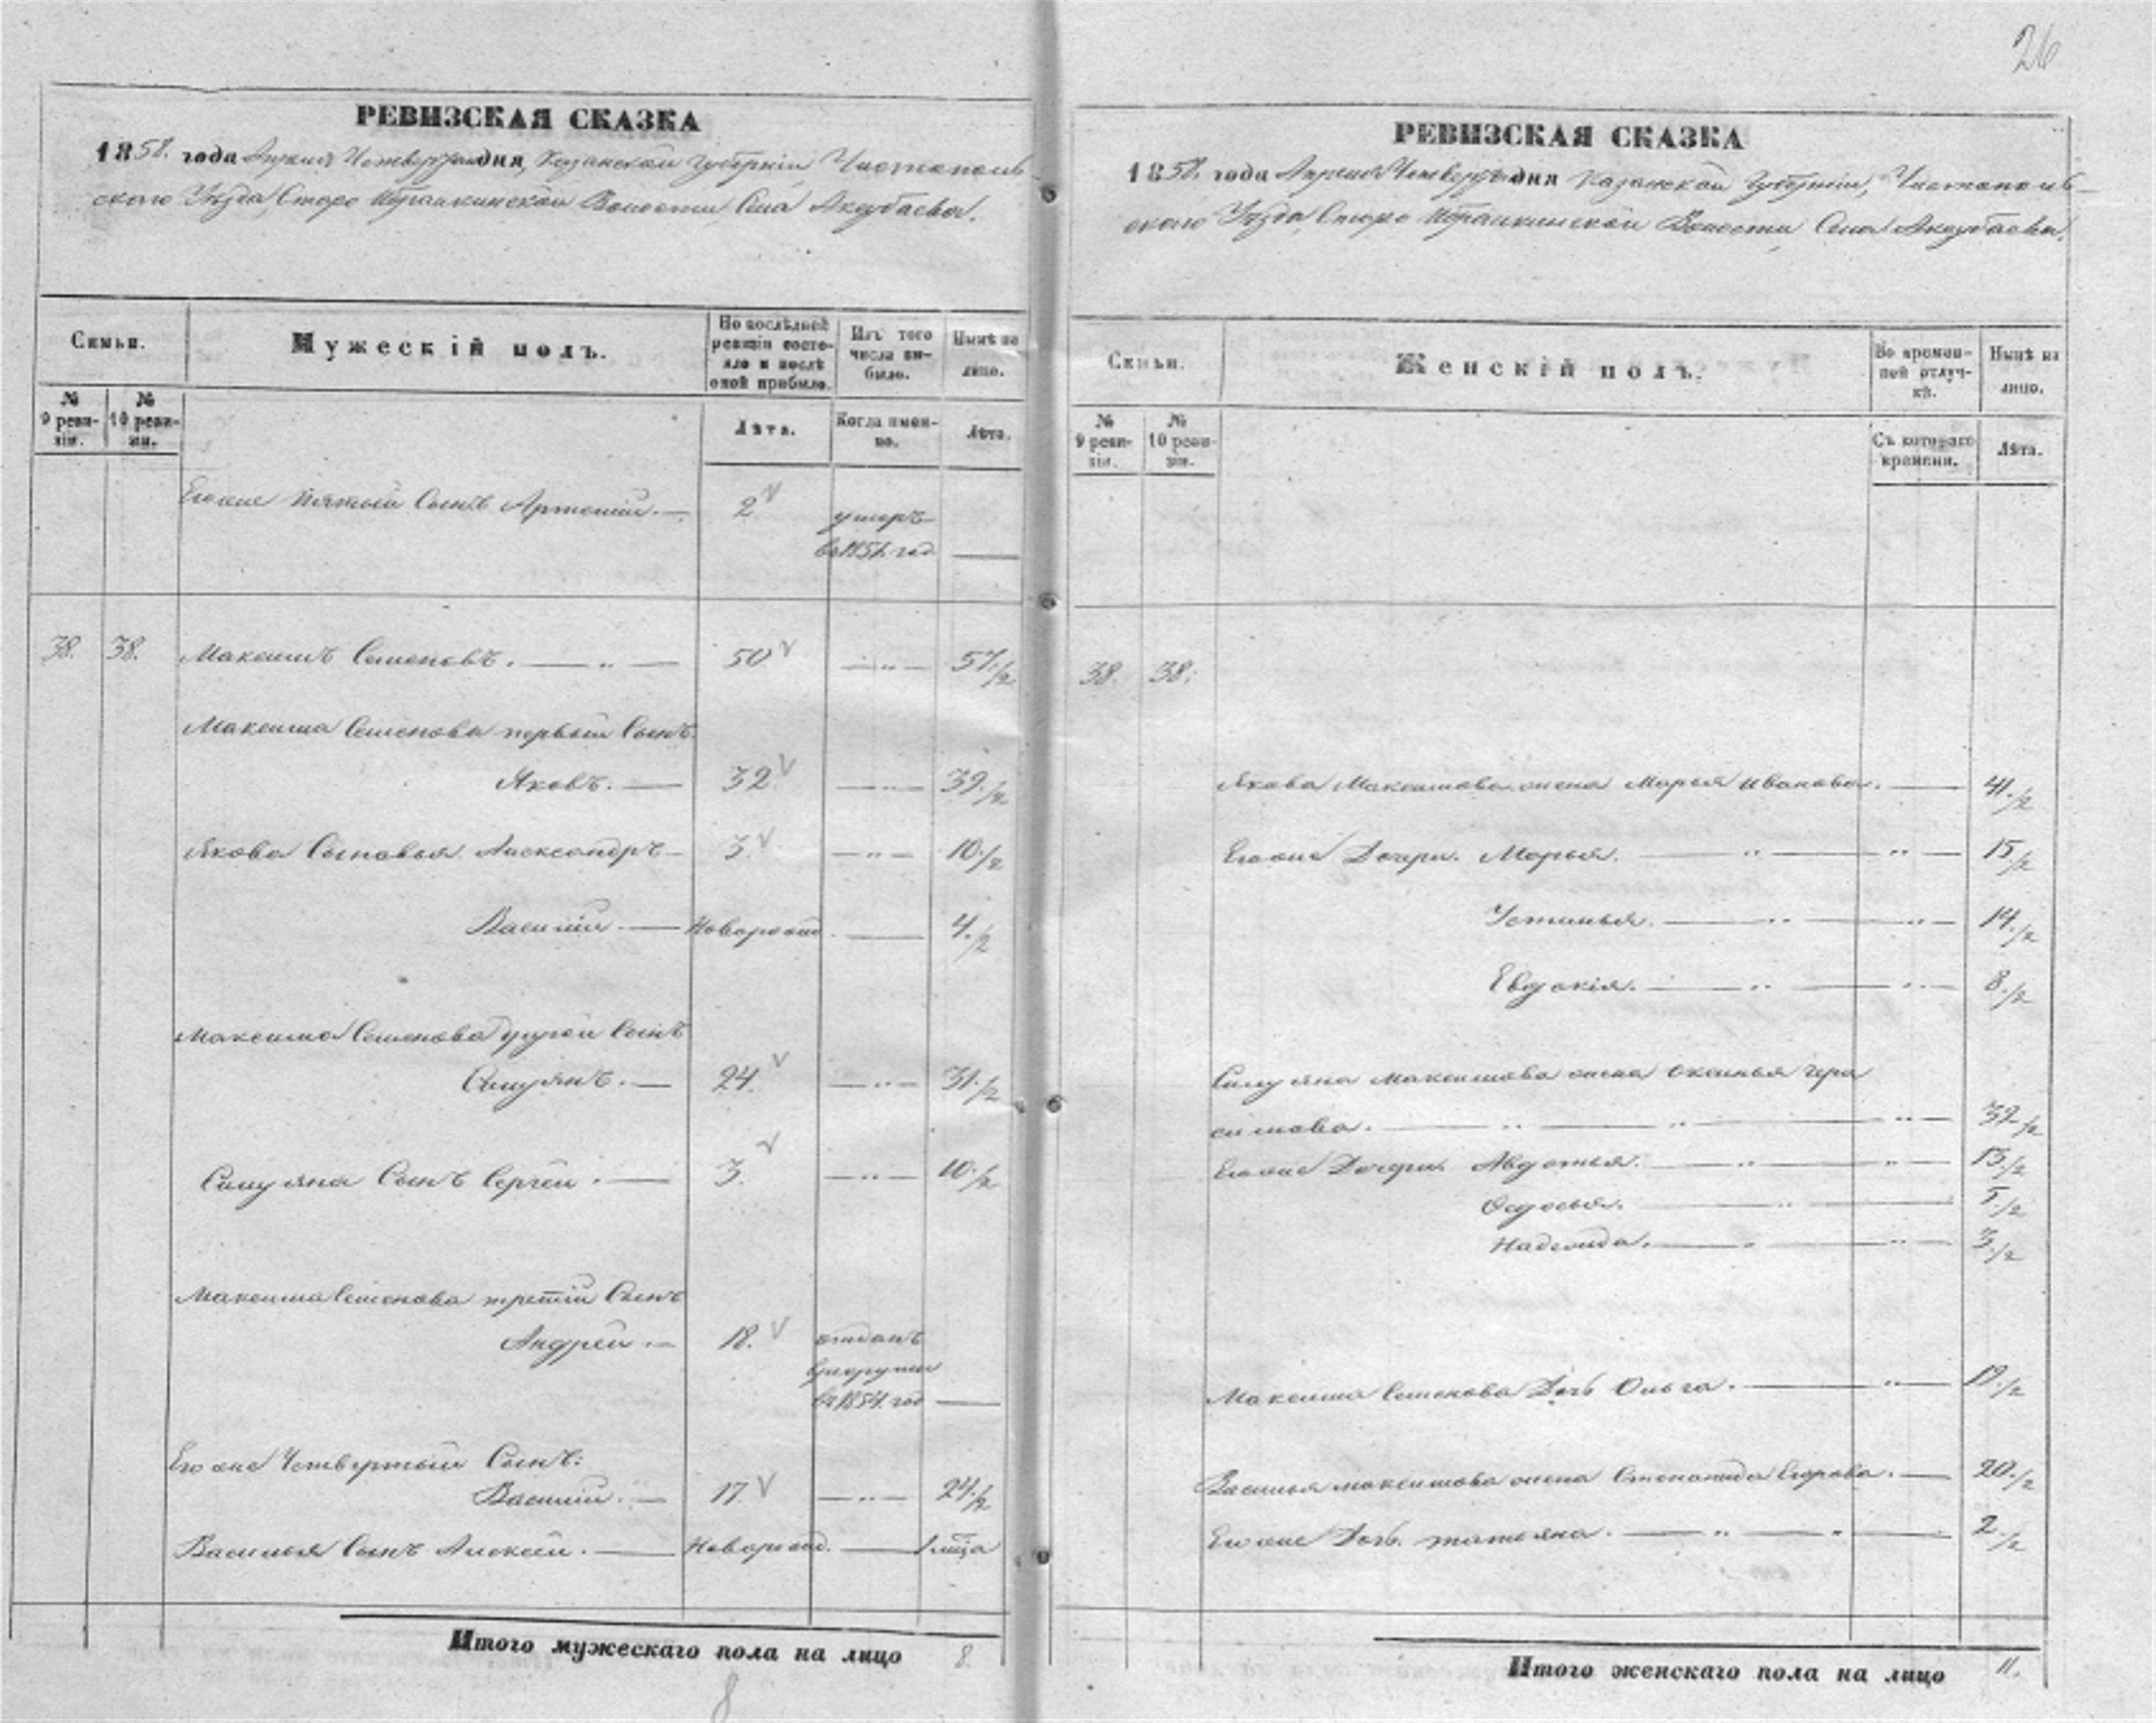 26
РЕВИЗСКАЯ СКАЗКА
1858. года Апреля Четвертаго дня, Казанской Губернiи Чистополь-
скаго Уѣзда, Старо Ибрайкинской Волости, Села Акзубаева.
Семьи.
Мужескiй полъ.
По послѣдней ревизiи состояло и послѣ оной прибыло.
Изъ того числа выбыло.
Нынѣ на лицо.
№ 9 ревизiи.
№ 10 ревизiи.
Лѣта.
Когда именно.
Лѣта.
Егоже пятый Сынъ Артемiй. 2 умеръ
въ 1851. год
38. 38. Максимъ Семеновъ. 50 57./2
Максима Семенова первый Сынъ
Яковъ. 32 39./2
Якова Сыновья Александръ 3 10./2
Василiй. Новорожд. 4./2
Максима Семенова другой Сынъ
Самуянъ. 24. 31./2
Самуяна Сынъ Сергей. 3. 10./2
Максима Семенова третiй Сынъ
Андрей. 18. отданъ
врекруты
въ 1854. год
Егоже Четвертый Сынъ:
Василiй. 17. 24./2
Василья Сынъ Алексей. Новорожд.
Итого мужескаго пола на лицо 8.
8
РЕВИЗСКАЯ СКАЗКА
1858. года Апреля Четвертаго дня Казанской Губернiи, Чистополь-
скаго Уѣзда, Старо Ибрайкинской Волости, Села Акзубаева.
Семьи.
Женскiй полъ.
Во временной отлучкѣ.
Нынѣ на лицо.
№ 9 ревизiи.
№ 10 ревизiи.
Съ котораго времени.
Лѣта.
38. 38.
Якова Максимова жена Марья Иванова. 41./2
Егоже Дочери. Марья. 15./2
Устинья. 14./2
Евдокiя. 8./2
Самуяна Максимова жена Оксинья Гера
симова. 32./2
Егоже Дочери Авдотья. 13./2
Федосья. 5./2
Надежда. 3./2
Максима Семенова Дочь Ольга. 19./2
Василья Максимова жена Степанида Егорова. 20./2
Егоже Дочь. Татьяна. 2./2
Итого женскаго пола на лицо 11.